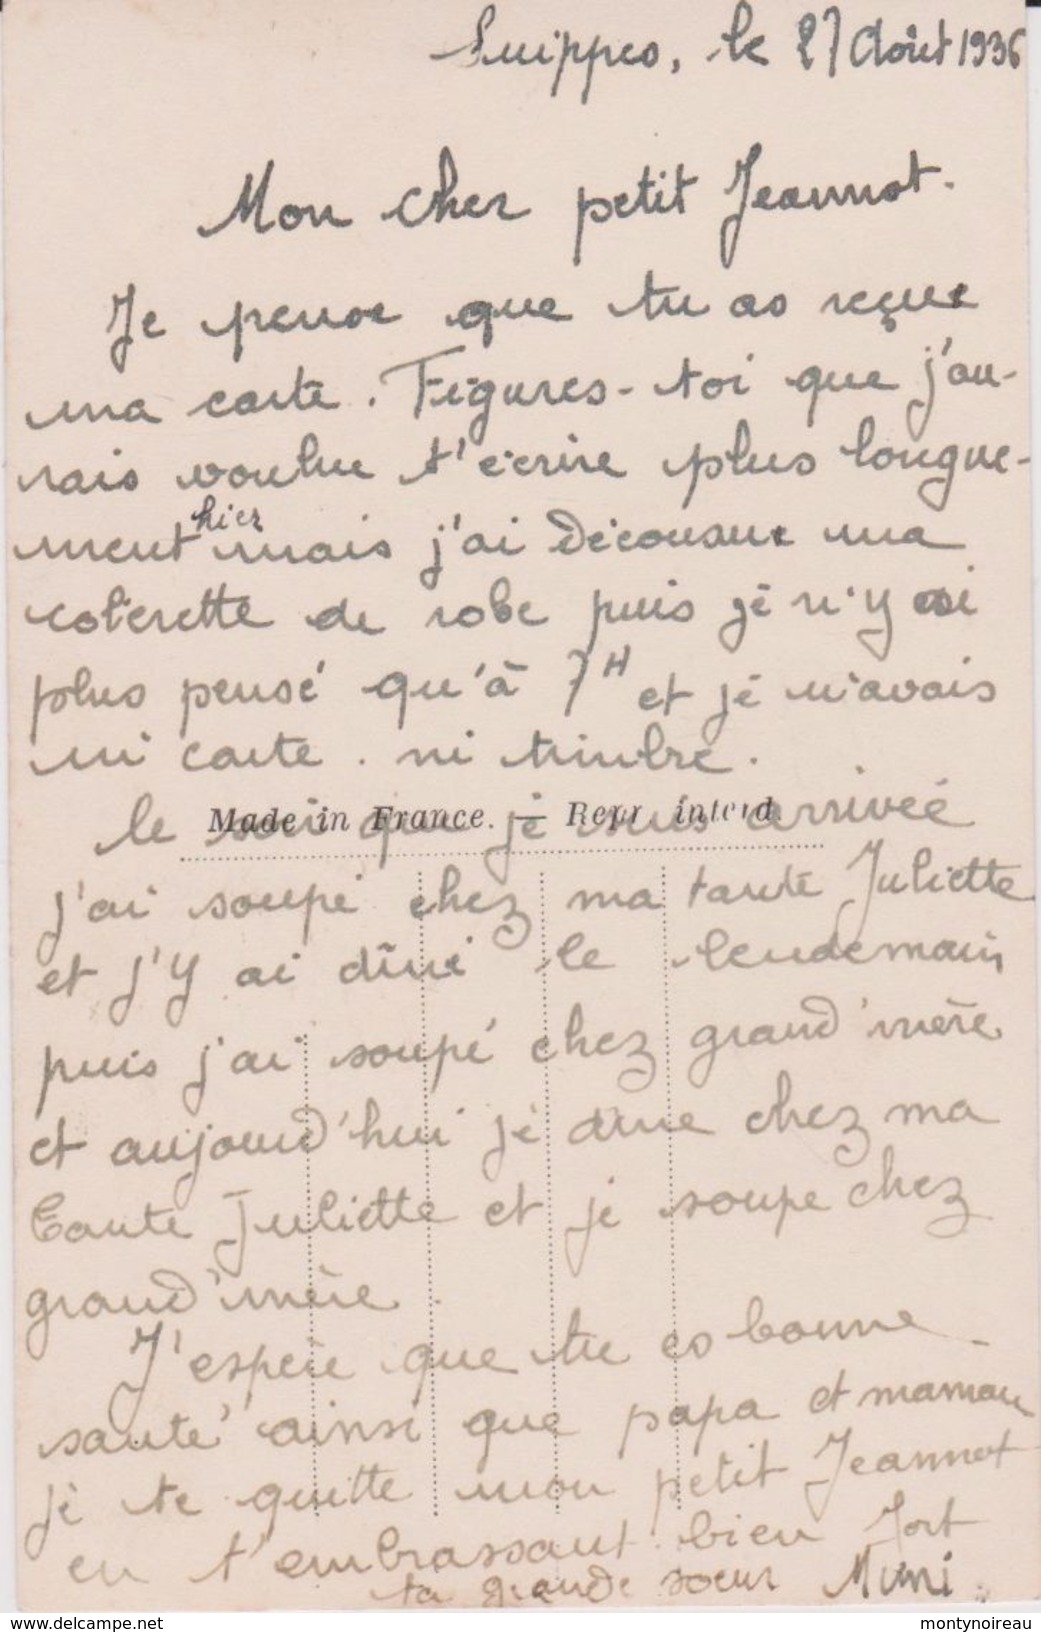 Suippes, le 27 Août 1936
Mon cher petit Jeannot.
Je pense que tu as reçue
ma carte. Figures-toi que j'au-
rais voulue t'écrire plus longue-
ment hier mais j'ai décousue ma
colerette de robe puis je n'y ai
plus pensé qu'à 7H et je n'avais
ni carte. ni timbre.
le soir que je suis arrivée
Made in France. — Repr. interd.
j'ai soupé chez ma tante Juliette
et j'y ai dîné le lendemain
puis j'ai soupé chez grand'mère
et aujourd'hui je dîne chez ma
tante Juliette et je soupe chez
grand'mère.
J'espère que tu es bonne
santé ainsi que papa et maman
je te quitte mon petit Jeannot
en t'embrassant bien fort
ta grande soeur Mimi.
delcampe.net
montynoireau